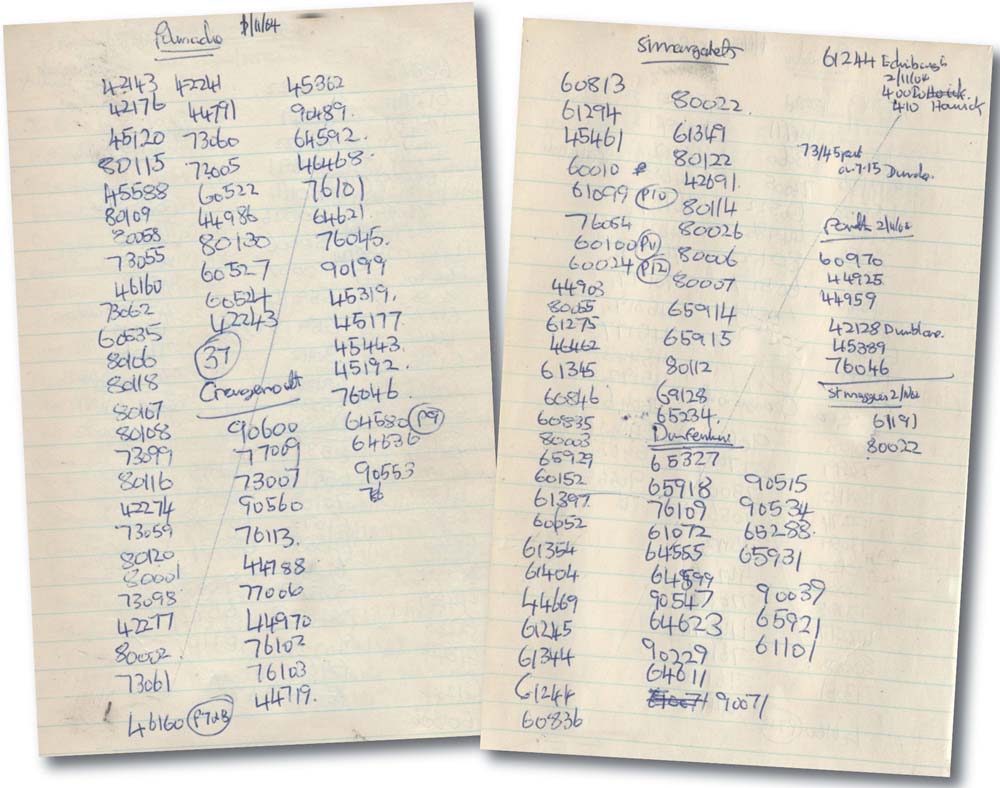 1/11/64
42143
42176
45120
80115
45588
80109
80058
73055
46160
73062
60535
80106
80118
80107
80108
73099
80116
42274
73059
80120
80001
73098
42277
80002
73061
46160 P7&8
42241
44791
73060
72005
60522
44986
80130
60527
60524
42243
37
90600
77009
73007
90560
76113.
44788
77006
44970
76102
76103
44719.
45362
90489.
64592.
46468.
76101
64621.
76045.
90199
45319.
45177.
45443.
45192.
76046.
64580 P9
64636
90553
76
St Margarets
60813
61294
45461
60010
61099 P10
76054
60100 P11
60024 P12
44903
80055
61275
46462
61345
60846
60835
80003
65929
60152
61397
60652
61354
61404
44669
61245
61344
61244
60836
80022.
61349
80122
42691.
80114
80026
80006
80007
65914
65915
80112
69128
65234.
Dunfermline
65327
65918
76109
61072
64555
64599
90547
64623
90229
64611
61007 90071
90515
90534
65288.
65931
90039
65921
61101
61244 Edinburgh
2/11/64
400 to Hawick.
410 Hawick
73145 past
on 7.15 Dundee.
Perth 2/11/64
60970
44925
44959
42128 Dunblane.
45389
76046
St Maggies 2/Nov
61191
80022